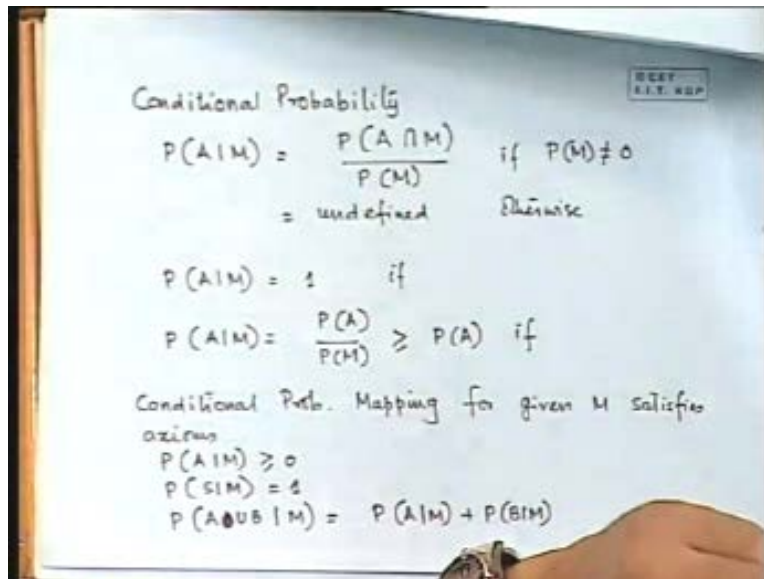 CCET
I.I.T. KGP
Conditional Probability
P(A|M) = P(A ∩ M) / P(M) if P(M) ≠ 0
= undefined Otherwise
P(A|M) = 1 if
P(A|M) = P(A) / P(M) ≥ P(A) if
Conditional Prob. Mapping for given M satisfies
axioms
P(A|M) ≥ 0
P(S|M) = 1
P(A∪B|M) = P(A|M) + P(B|M)